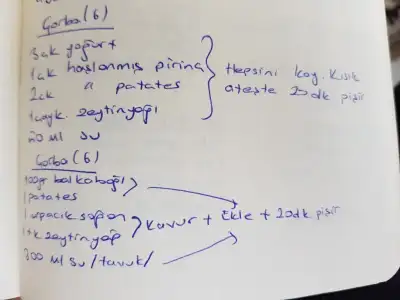 Çorba (6)
3ak yoğurt
1ak haşlanmış pirinç
2ak " patates
1çayk. zeytinyağı
20 ml su
Hepsini koy. Kısık
ateşte 20dk pişir
Çorba (6)
100gr balkabağı
1patates
1 arpacık soğan
1tk zeytinyağ
kavur + Ekle + 20dk pişir
200 ml su/tavuk/